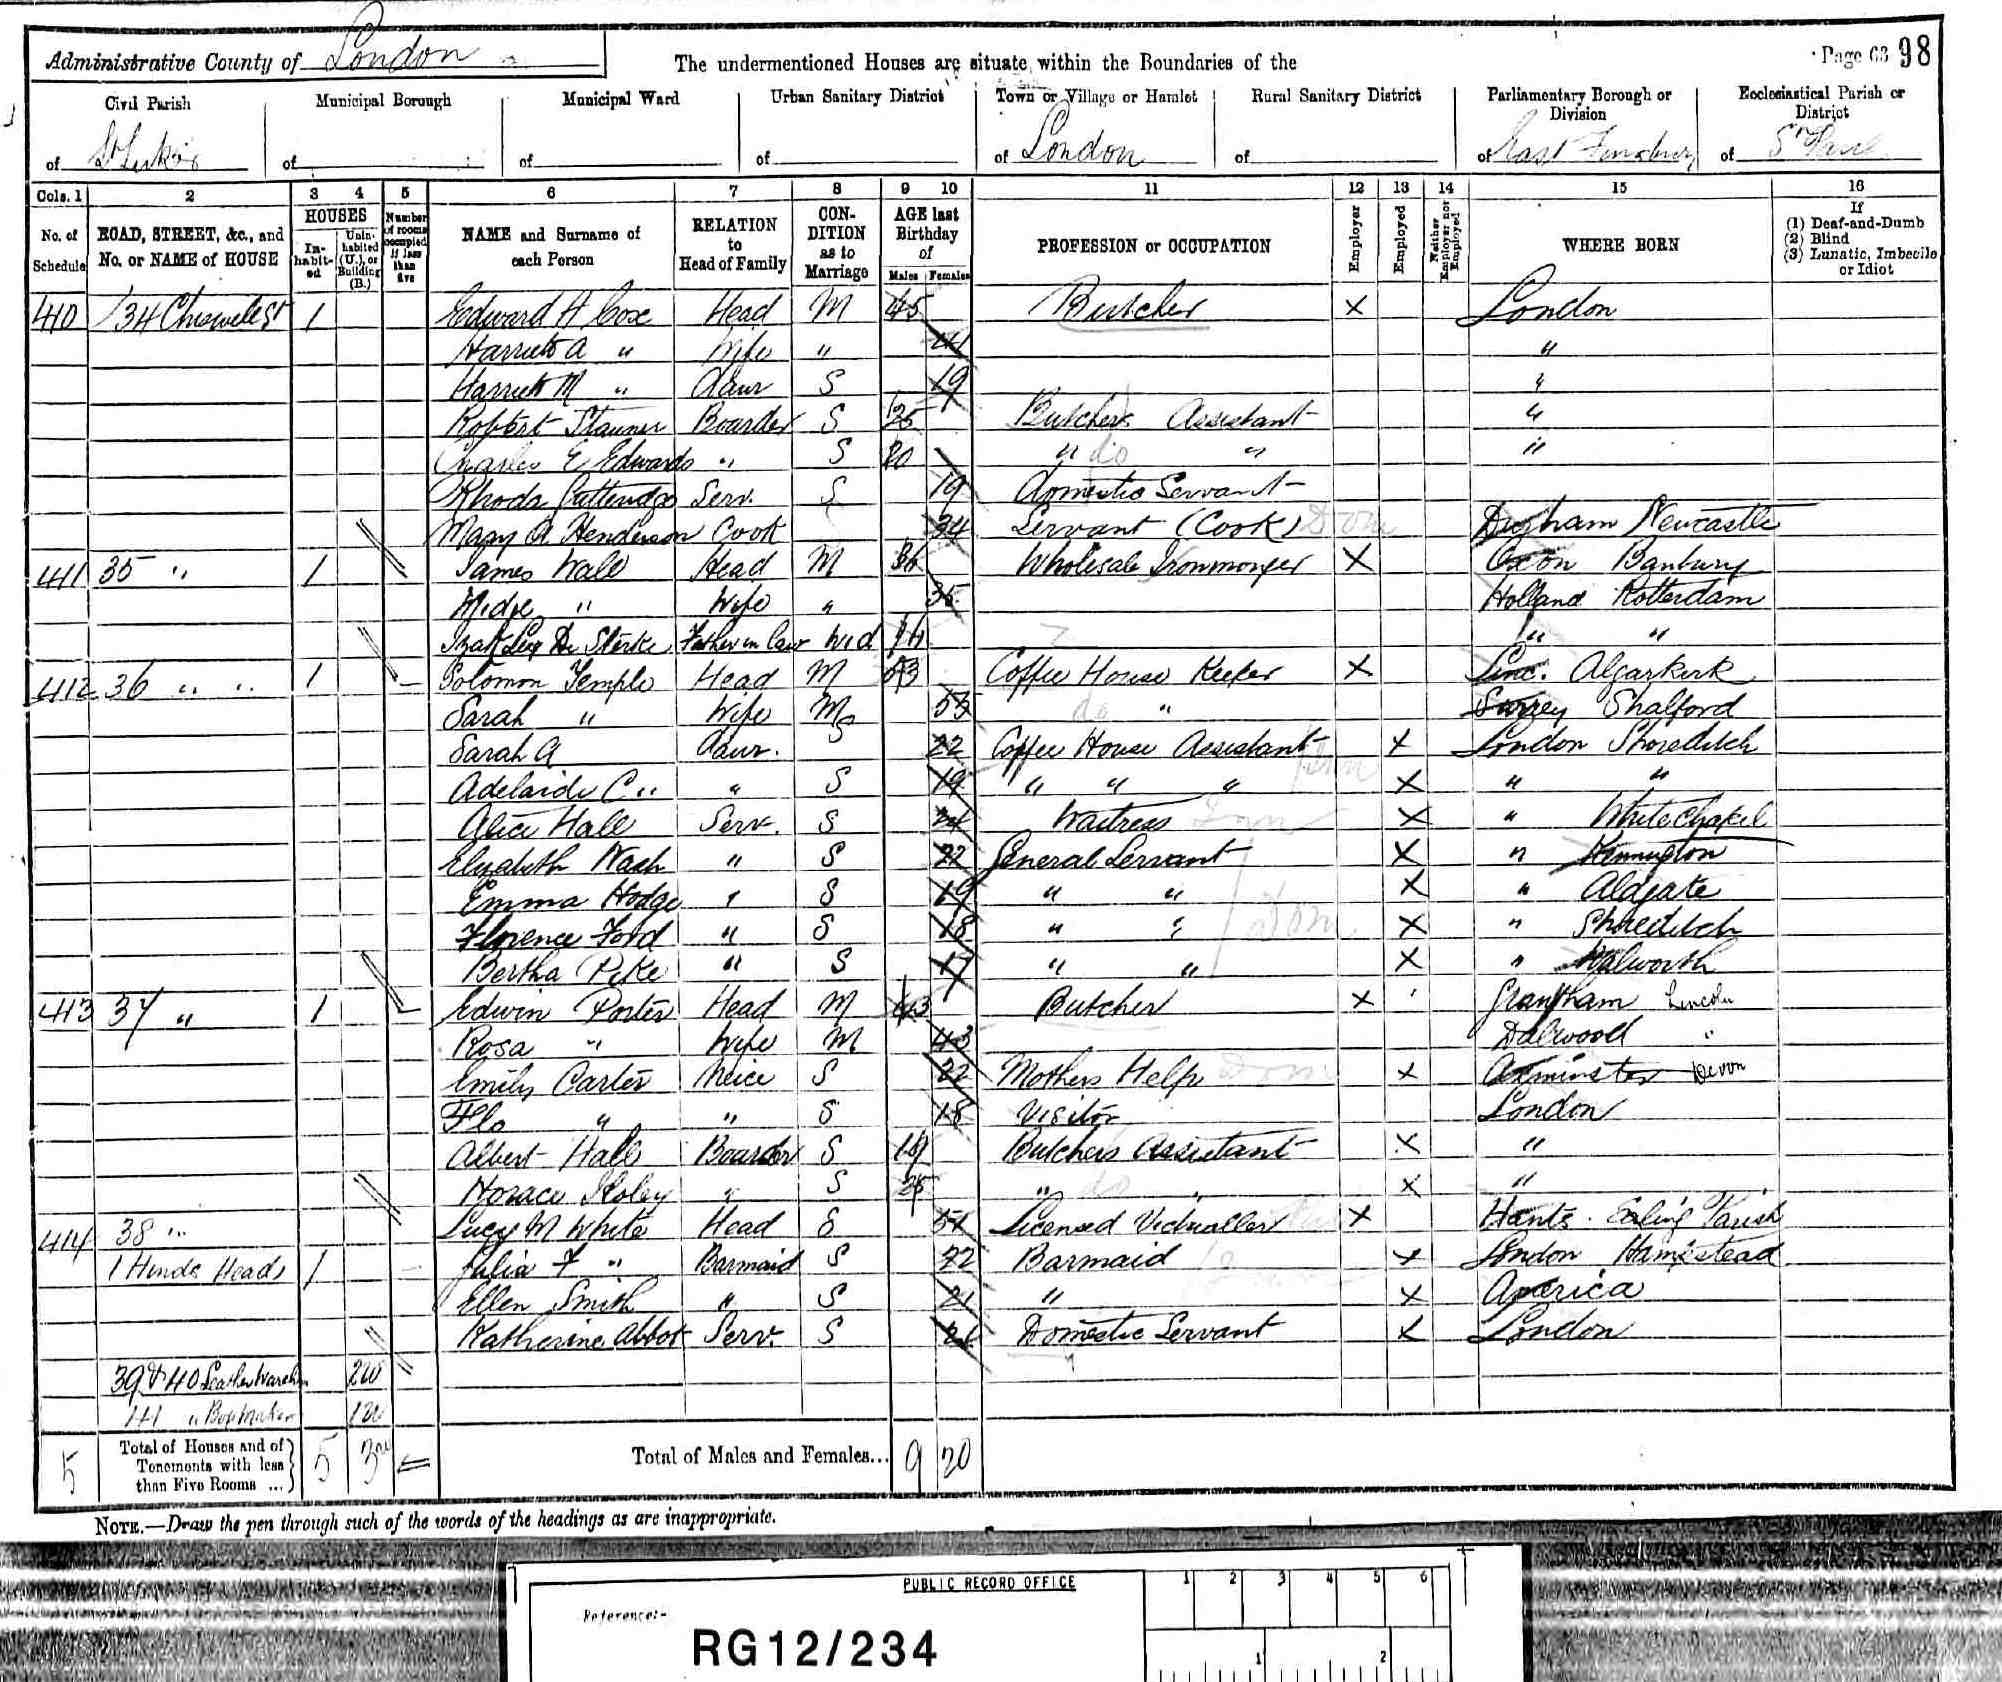 Administrative County of London
The undermentioned Houses are situate within the Boundaries of the
Page 63 98
Civil Parish Municipal Borough Municipal Ward Urban Sanitary District Town or Village or Hamlet Rural Sanitary District Parliamentary Borough or Division Ecclesiastical Parish or District
of St Lukes of of of of London of of East Finsbury of St Paul
Cols. 1 2 3 4 5 6 7 8 9 10 11 12 13 14 15 16
No. of Schedule
ROAD, STREET, &c., and No. or NAME of HOUSE
HOUSES
Inhabited
Uninhabited (U.), or Building (B.)
Number of rooms occupied if less than five
NAME and Surname of each Person
RELATION to Head of Family
CONDITION as to Marriage
AGE last Birthday of
Males Females
PROFESSION or OCCUPATION
Employer
Employed
Neither Employer nor Employed
WHERE BORN
If
(1) Deaf-and-Dumb
(2) Blind
(3) Lunatic, Imbecile or Idiot
410 34 Chiswell St 1 Edward A Cox Head M 45 Butcher X London
Harriett A " Wife " 41 "
Harriett M " Daur S 19 "
Robert Stauner Boarder S 25 Butchers Assistant "
Charles E Edwards " S 20 " do " "
Rhoda Gutteridge Serv. S 19 Domestic Servant
Mary A Henderson Cook 34 Servant (Cook) Dom Durham Newcastle
411 35 " 1 James Wall Head M 36 Wholesale Ironmonger X Oxon Banbury
" Wife " 35 Holland Rotterdam
De Sterke Father in law Wid " "
412 36 " " 1 Solomon Temple Head M 53 Coffee House Keeper X Linc. Algarkirk
Sarah " Wife M 53 do " Surrey Shalford
Sarah A Daur. S 22 Coffee House Assistant X London Shoreditch
Adelaide C " " S 19 " " " X " "
Alice Hall Serv. S 24 Waitress X " Whitechapel
Elizabeth Nash " S 22 General Servant X " Kennington
Emma Hodge " S 19 " " X " Aldgate
Florence Ford " S 18 " " Dom X " Shoreditch
Bertha Pike " S 17 " " X " Walworth
413 37 " 1 Edwin Porter Head M 43 Butcher X Grantham Lincoln
Rosa " Wife M 43 Dalwood "
Emily Carter Neice S 22 Mothers Help Dom X Axminster Devon
Flo " " S 18 Visitor London
Albert Hall Boarder S 19 Butchers Assistant X "
Horace " S 25 " do " X "
414 38 " Lucy M White Head S 51 Licensed Victualler X Hants. Ealing Parish
1 Hinds Head 1 Julia F " Barmaid S 22 Barmaid X London Hampstead
Ellen Smith " S 21 " X America
Katherine Abbot Serv. S 21 Domestic Servant X London
39 & 40 Leather Warehse 2U
41 " Boxmaker 1U
5 Total of Houses and of Tenements with less than Five Rooms ... 5 3U
Total of Males and Females... 9 20
NOTE.—Draw the pen through such of the words of the headings as are inappropriate.
PUBLIC RECORD OFFICE
1 2 3 4 5 6
Reference:-
RG12/234
1 2